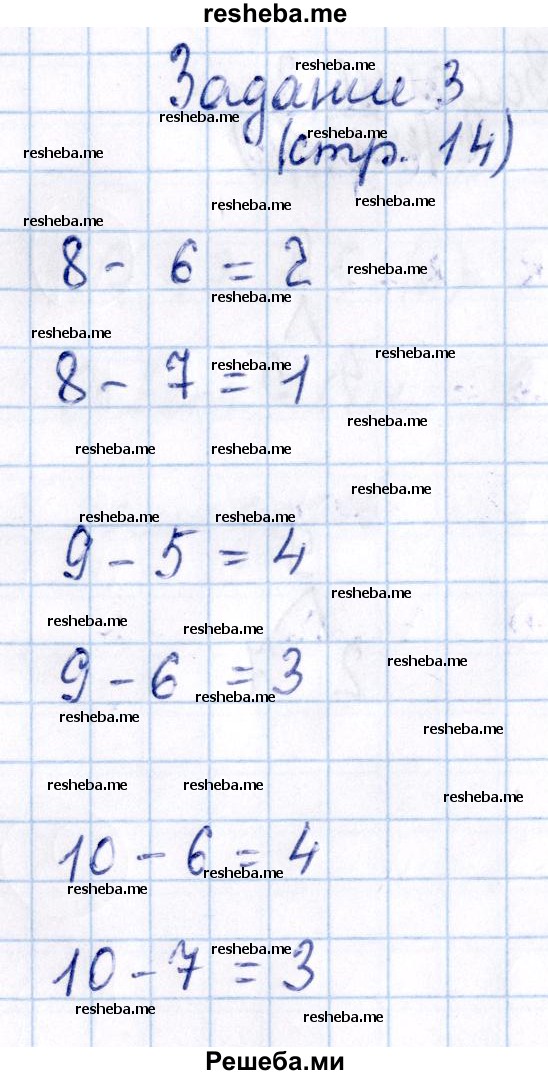 resheba.me
Задание 3
resheba.me
resheba.me
(стр. 14)
resheba.me
resheba.me
resheba.me
resheba.me
resheba.me
8 - 6 = 2
resheba.me
resheba.me
resheba.me
resheba.me
8 - 7 = 1
resheba.me
resheba.me
resheba.me
resheba.me
resheba.me
resheba.me
resheba.me
9 - 5 = 4
resheba.me
resheba.me
resheba.me
9 - 6 = 3
resheba.me
resheba.me
resheba.me
resheba.me
resheba.me
resheba.me
resheba.me
10 - 6 = 4
resheba.me
resheba.me
10 - 7 = 3
resheba.me
resheba.me
resheba.me
Решеба.ми